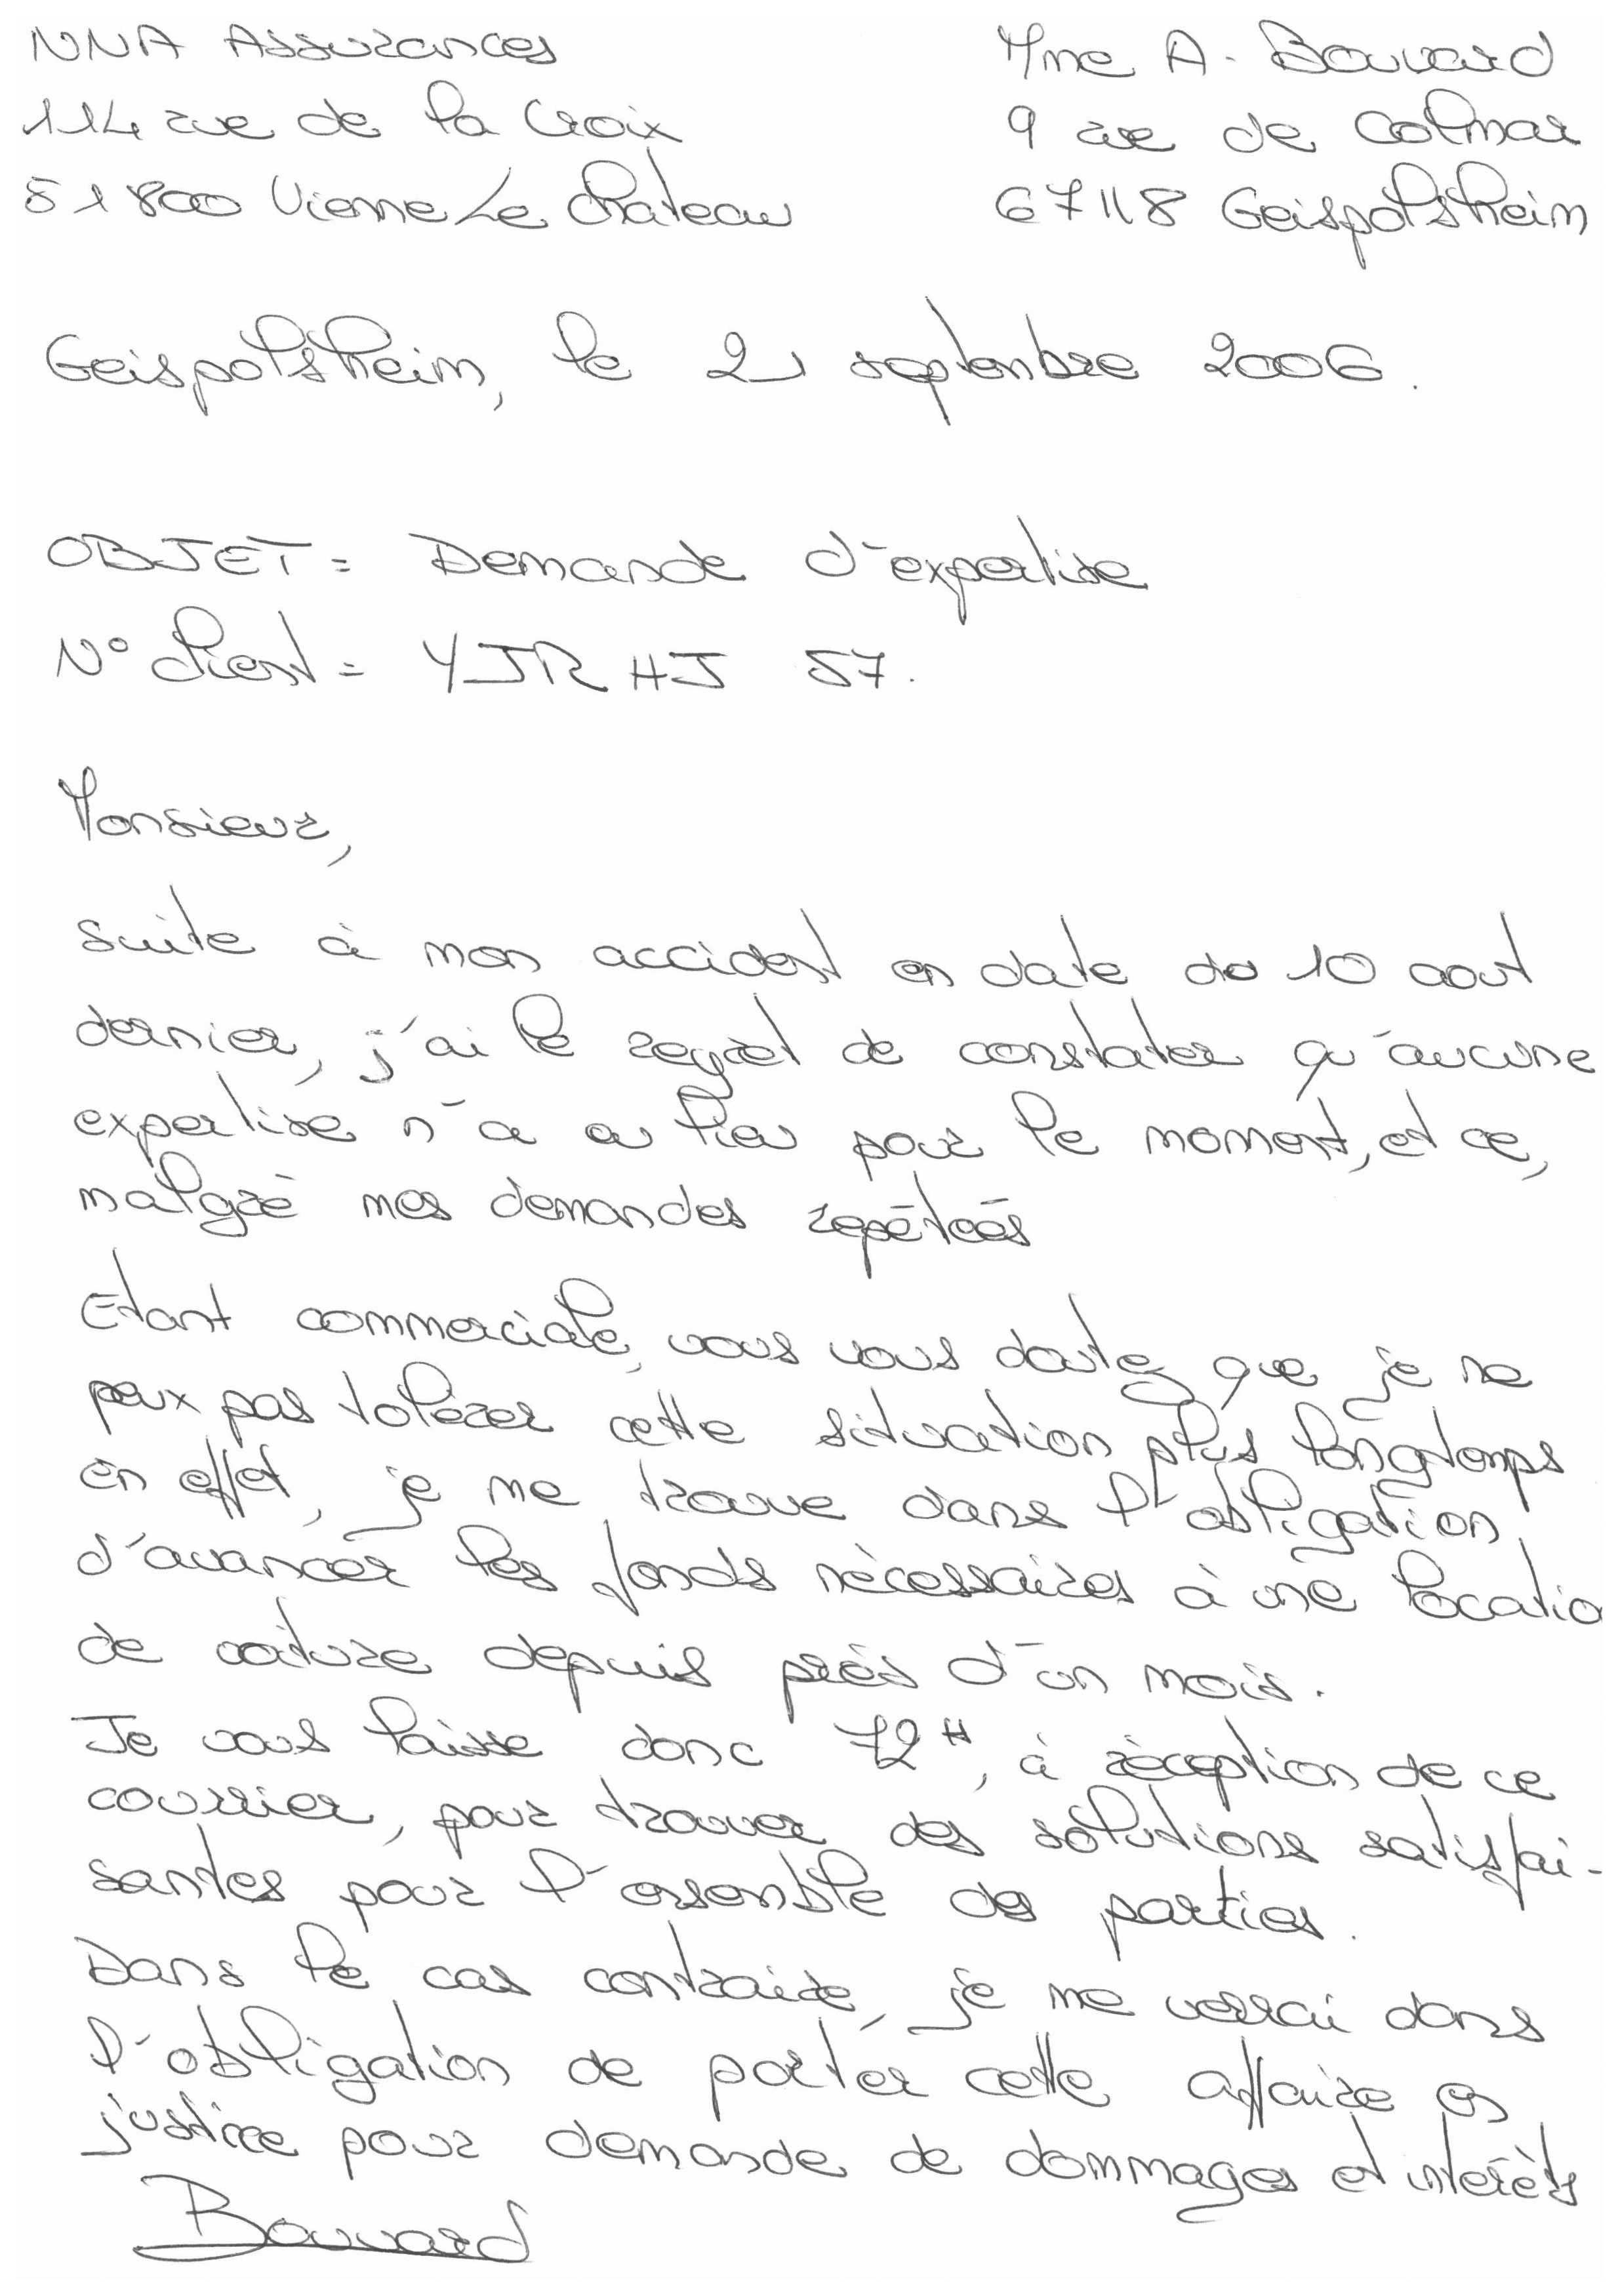 NNA Assurances
114 rue de la Croix
51800 Vienne Le Chateau
Mme A. Bouvard
9 rue de Colmar
67118 Geispolsheim
Geispolsheim, le 21 septembre 2006.
OBJET = Demande d'expertise
N° client = YJR HJ 57.
Monsieur,
suite à mon accident en date du 10 aout
dernier, j'ai le regret de constater qu'aucune
expertise n'a eu lieu pour le moment, et ce,
malgré mes demandes repétées
Etant commerciale, vous vous doutez que je ne
peux pas tolérer cette situation plus longtemps
en effet, je me trouve dans l'obligation
d'avancer les fonds nécessaires à une locatio
de voiture depuis près d'un mois.
Je vous laisse donc 72H, à réception de ce
courrier, pour trouver des solutions satisfai-
santes pour l'ensemble des parties.
Dans le cas contraire, je me verrai dans
l'obligation de porter cette affaire en
justice pour demande de dommages et interêts
Bouvard